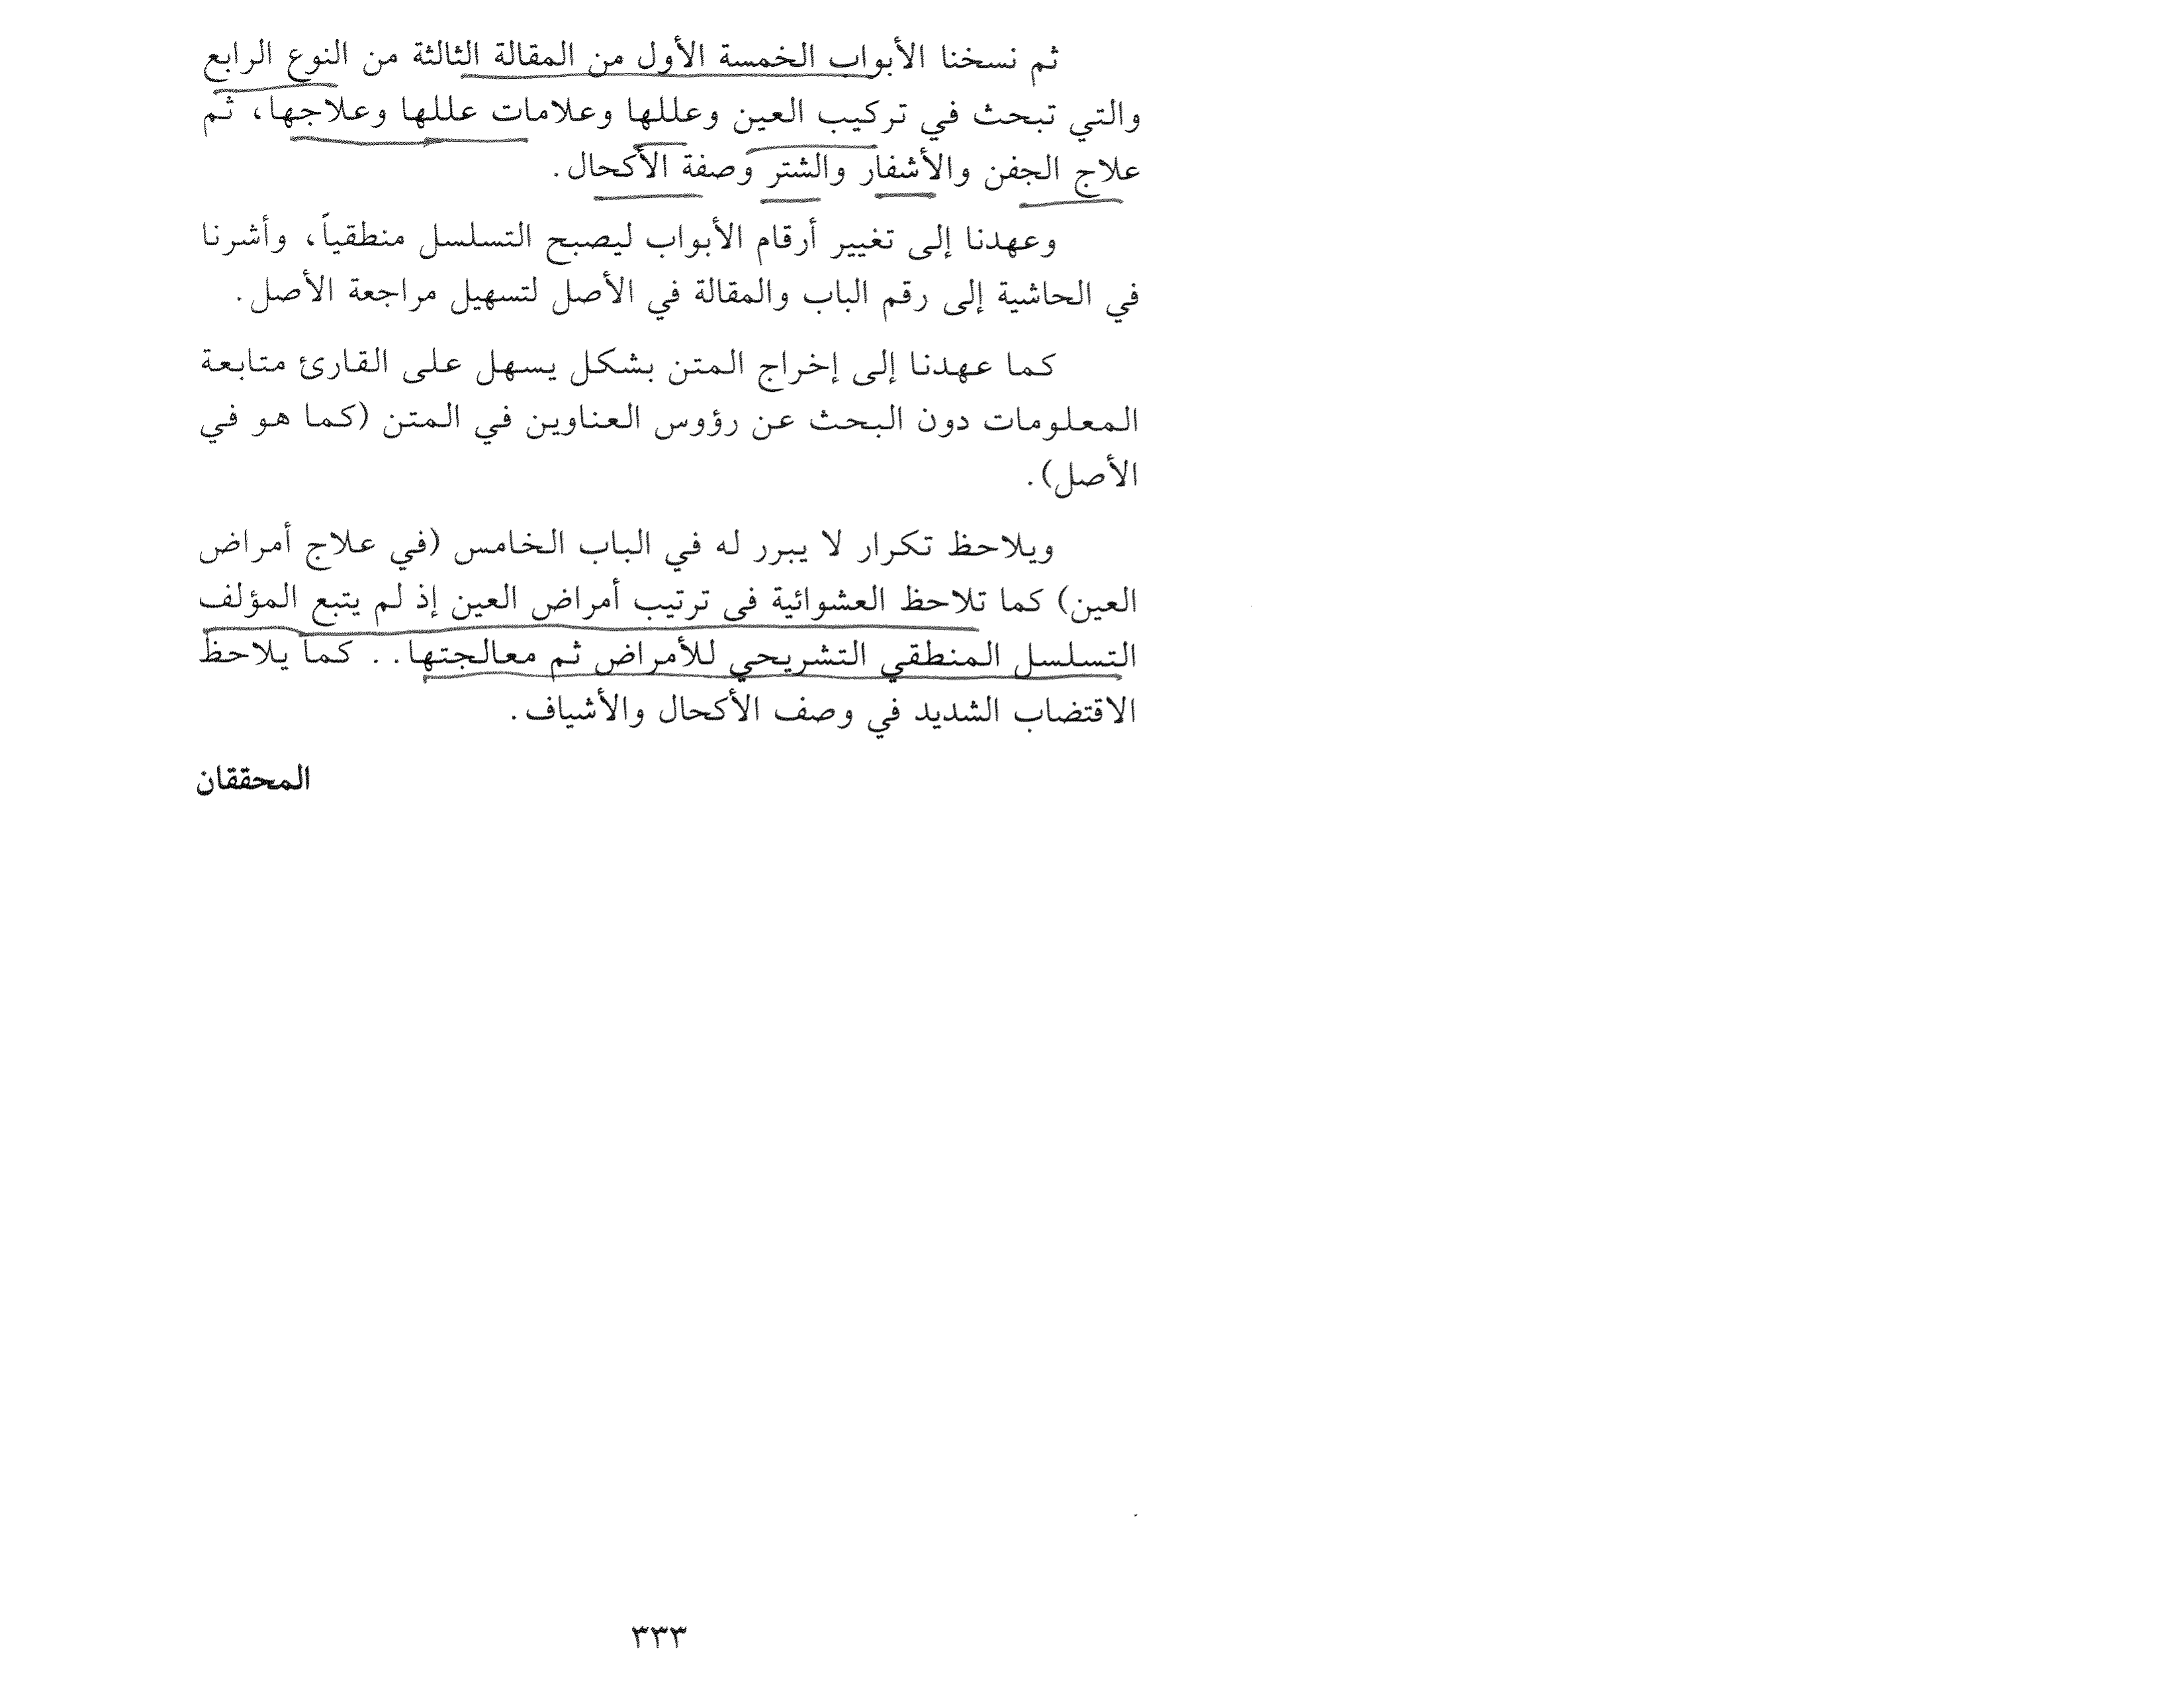 ثم نسخنا الأبواب الخمسة الأول من المقالة الثالثة من النوع الرابع
والتي تبحث في تركيب العين وعللها وعلامات عللها وعلاجها، ثم
علاج الجفن والأشفار والشتر وصفة الأكحال.
وعهدنا إلى تغيير أرقام الأبواب ليصبح التسلسل منطقياً، وأشرنا
في الحاشية إلى رقم الباب والمقالة في الأصل لتسهيل مراجعة الأصل.
كما عهدنا إلى إخراج المتن بشكل يسهل على القارئ متابعة
المعلومات دون البحث عن رؤوس العناوين في المتن (كما هو في
الأصل).
ويلاحظ تكرار لا يبرر له في الباب الخامس (في علاج أمراض
العين) كما تلاحظ العشوائية في ترتيب أمراض العين إذ لم يتبع المؤلف
التسلسل المنطقي التشريحي للأمراض ثم معالجتها.. كما يلاحظ
الاقتضاب الشديد في وصف الأكحال والأشياف.
المحققان
٣٣٣